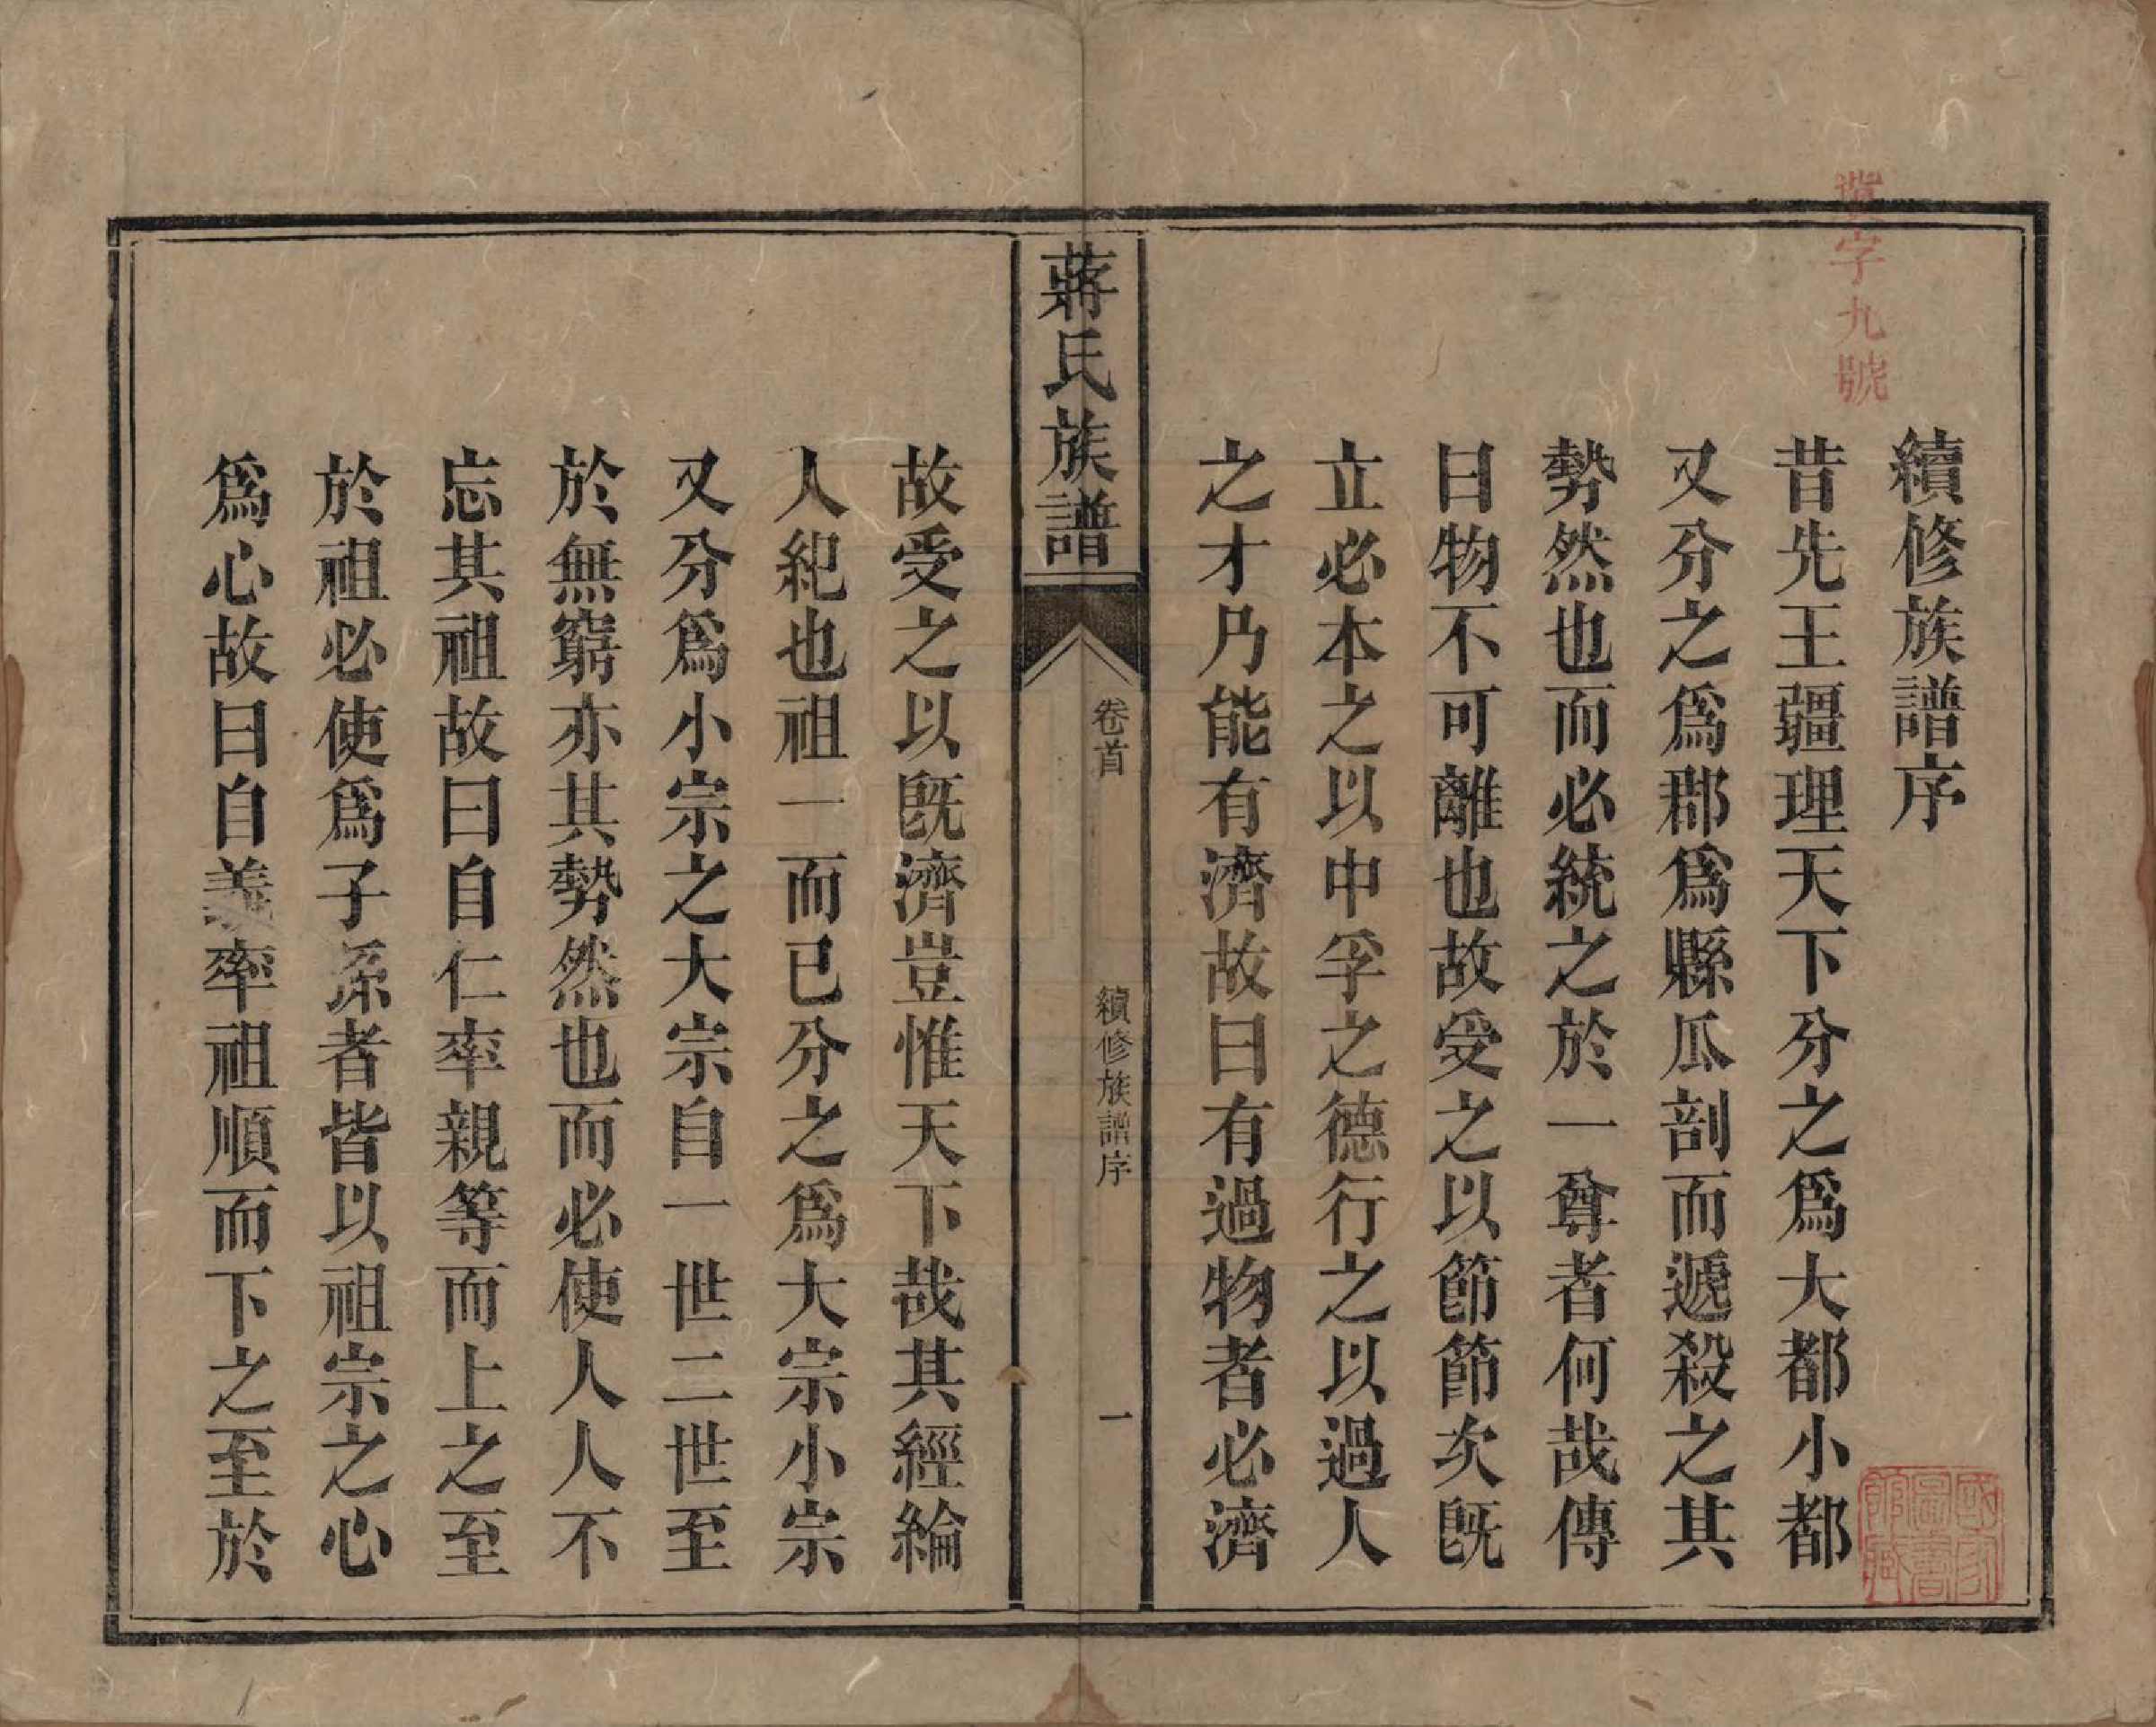 續修族譜序
昔先王疆理天下分之爲大都小都
又分之爲郡爲縣瓜剖而遞殺之其
勢然也而必統之於一尊者何哉傳
曰物不可離也故受之以節節次既
立必本之以中孚之德行之以過人
之才乃能有濟故曰有過物者必濟
蔣氏族譜
卷首
續修族譜序
一
故受之以既濟豈惟天下哉其經綸
人紀也祖一而已分之爲大宗小宗
又分爲小宗之大宗自一世二世至
於無窮亦其勢然也而必使人人不
忘其祖故曰自仁率親等而上之至
於祖必使爲子孫者皆以祖宗之心
爲心故曰自義率祖順而下之至於
字九號
國家圖書館藏